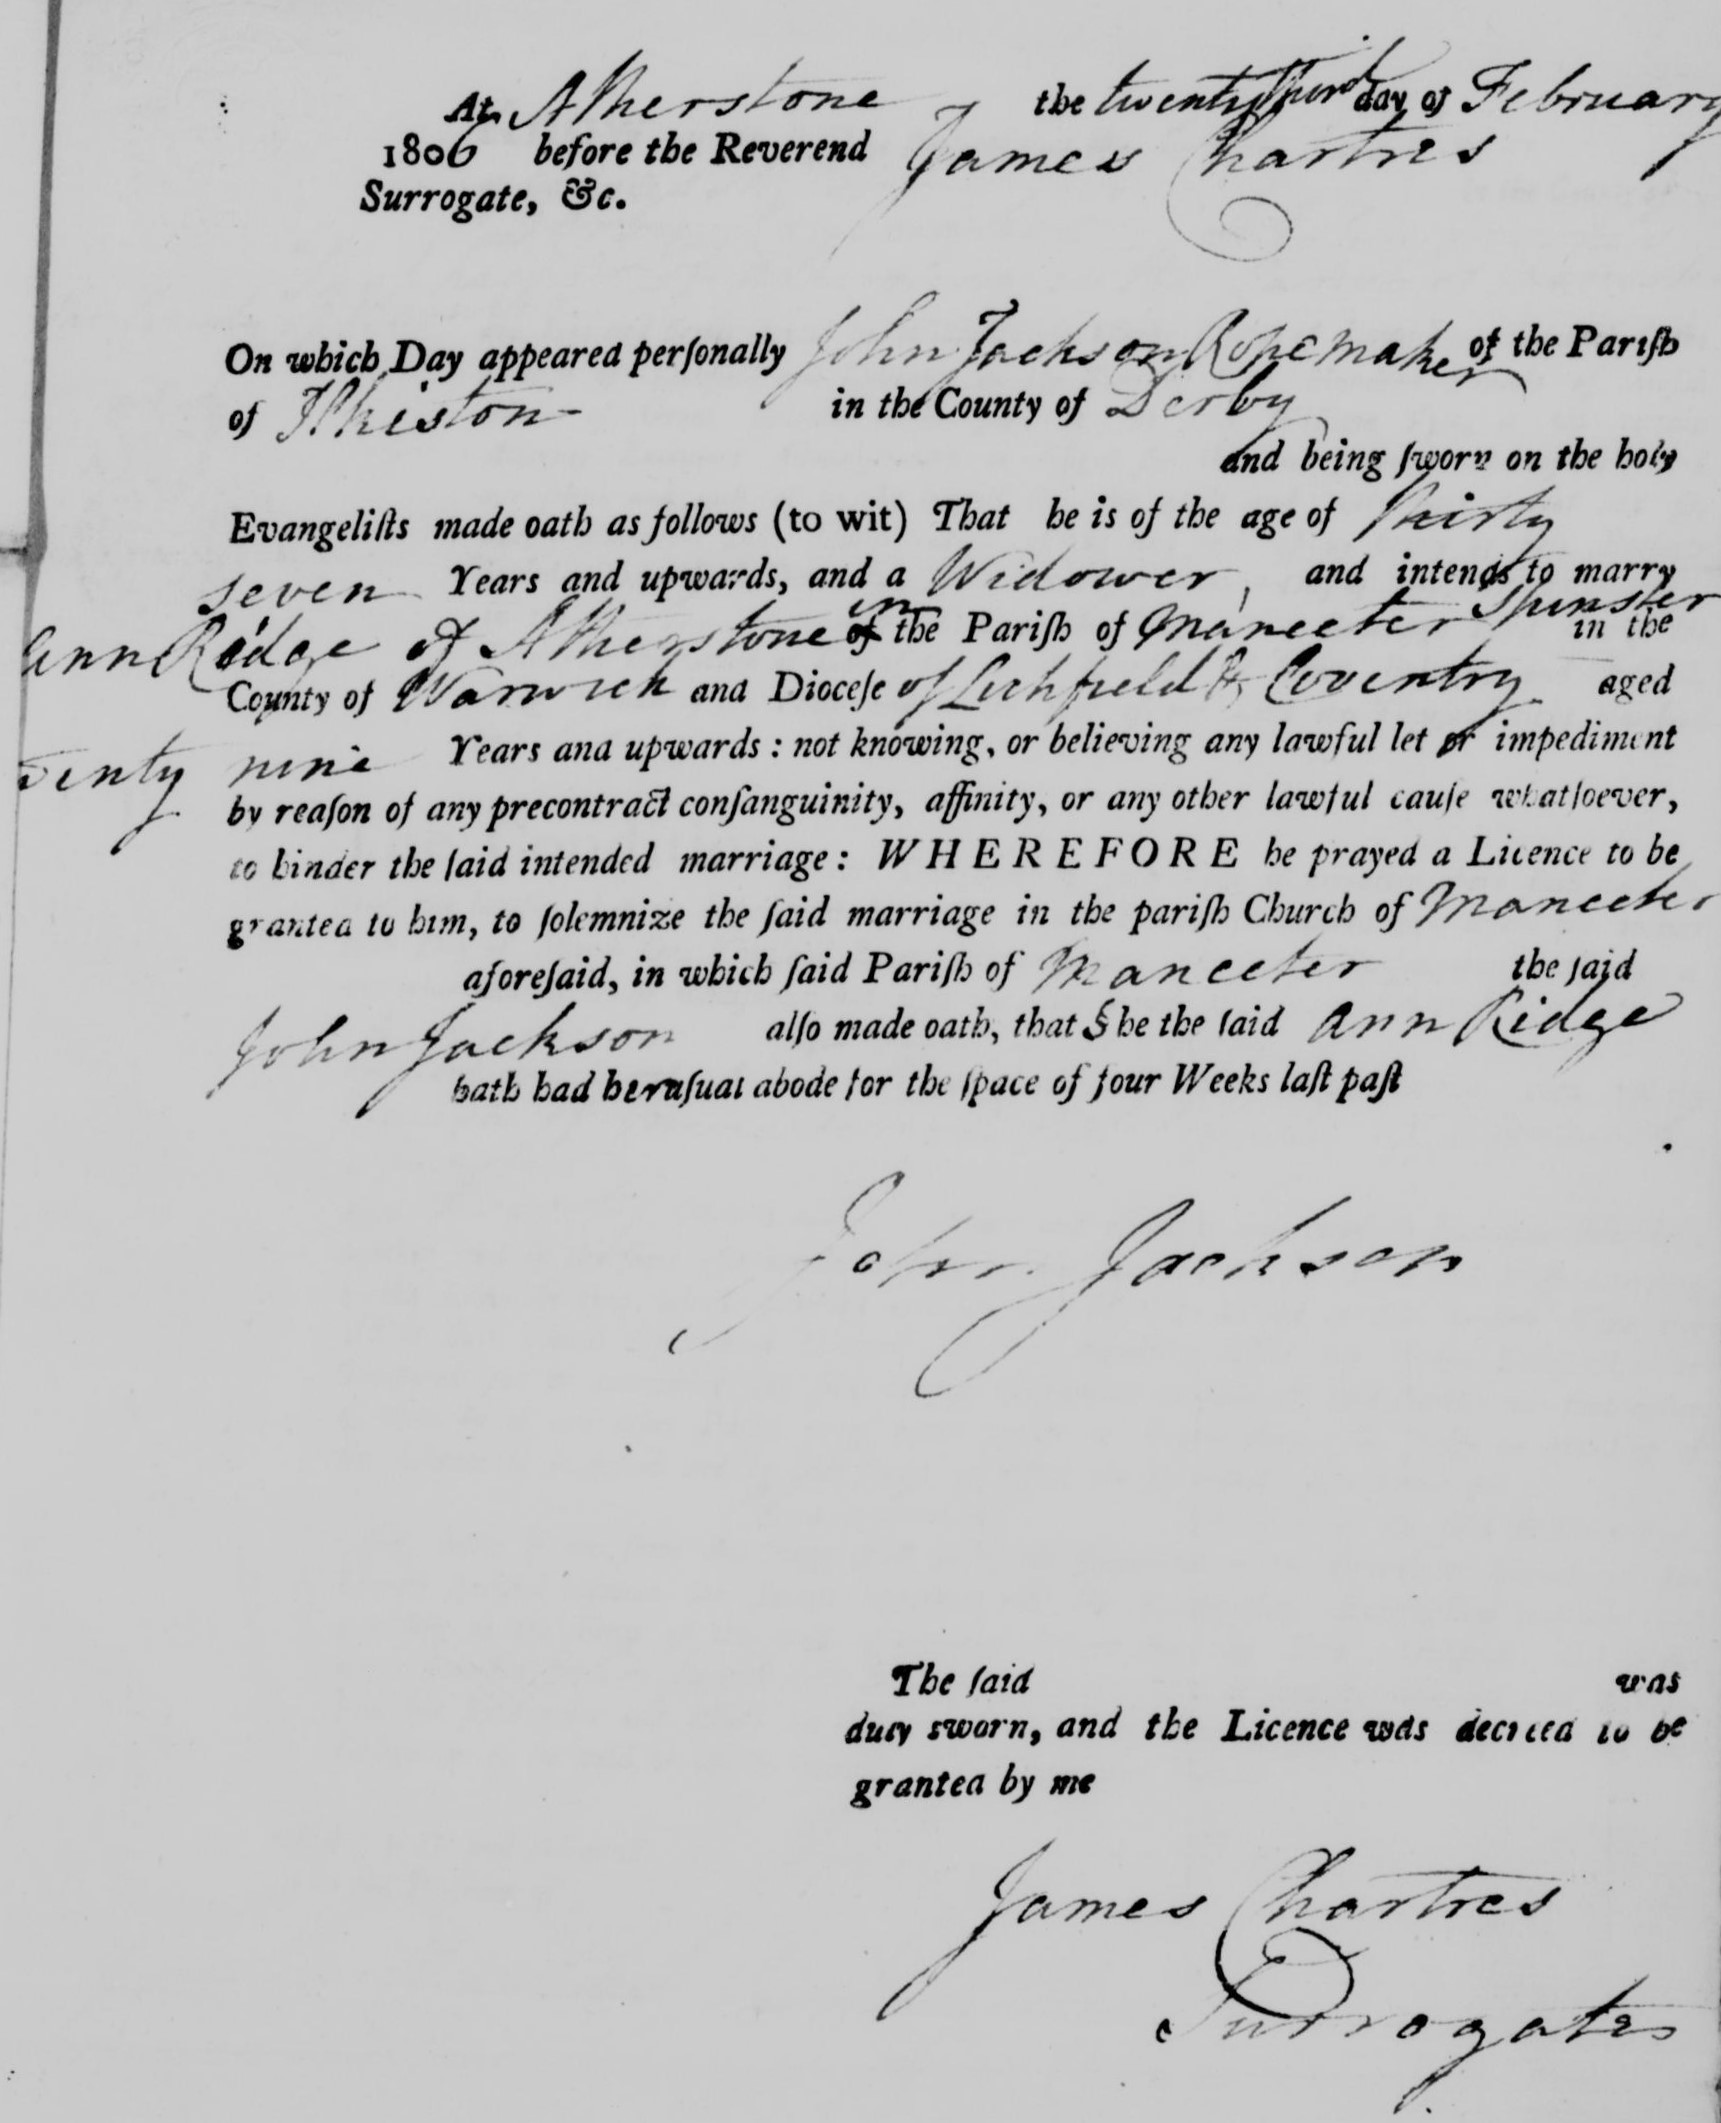 At Atherstone the twenty third day of February
1806 before the Reverend James Chartres
Surrogate, &c.
On which Day appeared perſonally John Jackson Ropemaker of the Pariſh
of Ilkiston in the County of Derby
and being ſworn on the holy
Evangeliſts made oath as follows (to wit) That he is of the age of thirty
seven Years and upwards, and a Widower, and intends to marry
Ann Ridge of Atherstone in the Pariſh of Manceter Spinster in the
County of Warwick and Dioceſe of Lichfield & Coventry aged
wenty nine Years and upwards : not knowing, or believing any lawful let or impediment
by reaſon of any precontract conſanguinity, affinity, or any other lawful cauſe whatſoever,
to hinder the ſaid intended marriage : WHEREFORE he prayed a Licence to be
granted to him, to ſolemnize the ſaid marriage in the pariſh Church of Manceter
aforeſaid, in which ſaid Pariſh of Manceter the ſaid
John Jackson alſo made oath, that She the ſaid Ann Ridge
hath had her uſual abode for the ſpace of four Weeks laſt paſt
John Jackson
The ſaid was
duly sworn, and the Licence was decreed to be
granted by me
James Chartres
Surrogate